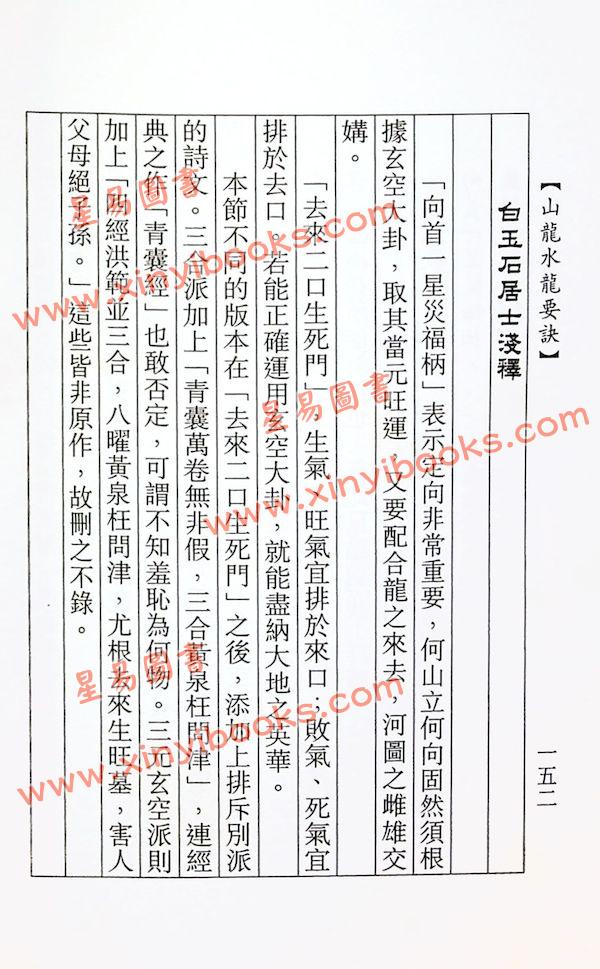 【山龍水龍要訣】
一五二
白玉石居士淺釋
「向首一星災福柄」表示定向非常重要，何山立何向固然須根
據玄空大卦，取其當元旺運，又要配合龍之來去，河圖之雌雄交
媾。
「去來二口生死門」，生氣、旺氣宜排於來口；敗氣、死氣宜
排於去口。若能正確運用玄空大卦，就能盡納大地之英華。
本節不同的版本在「去來二口生死門」之後，添加上排斥別派
的詩文。三合派加上「青囊萬卷無非假，三合黃泉枉問津」，連經
典之作「青囊經」也敢否定，可謂不知羞恥為何物。三元玄空派則
加上「四經洪範並三合，八曜黃泉枉問津，尤根去來生旺墓，害人
父母絕子孫。」這些皆非原作，故刪之不錄。
星易圖書
www.xinyibooks.com
星易圖書
www.xinyibooks.com
星易圖書
www.xinyibooks.com